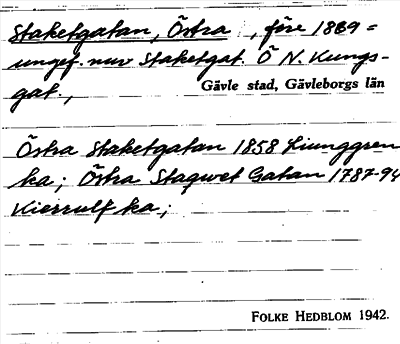 Staketgatan, Östra, före 1869 =
ungef. nuv Staketgat. Ö N. Kungs-
gat.,
Gävle stad, Gävleborgs län
Östra Staketgatan 1858 Ljunggren
ka; Östra Staqwet Gatan 1787-94
Kierrulf ka;
FOLKE HEDBLOM 1942.